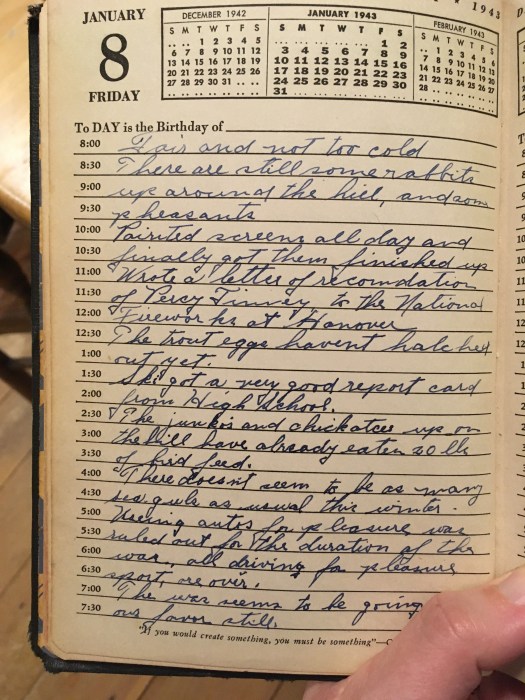 1943
JANUARY
8
FRIDAY
DECEMBER 1942
S M T W T F S
. . 1 2 3 4 5
6 7 8 9 10 11 12
13 14 15 16 17 18 19
20 21 22 23 24 25 26
27 28 29 30 31 . .
JANUARY 1943
S M T W T F S
. . . . . 1 2
3 4 5 6 7 8 9
10 11 12 13 14 15 16
17 18 19 20 21 22 23
24 25 26 27 28 29 30
31 . . . . . .
FEBRUARY 1943
S M T W T F S
. 1 2 3 4 5 6
7 8 9 10 11 12 13
14 15 16 17 18 19 20
21 22 23 24 25 26 27
28 . . . . . .
To DAY is the Birthday of
8:00 Fair and not too cold
8:30 There are still some rabbits
9:00 up around the hill, and som
9:30 pheasants
10:00 Painted screens all day and
10:30 finally got them finished up
11:00 Wrote a letter of recomdation
11:30 of Percy Finney to the National
12:00 Fireworks at Hanover
12:30 The trout eggs havent hatched
1:00 out yet.
1:30 Ski got a very good report card
2:00 from High School.
2:30 The junkos and chickatees up on
3:00 the hill have already eaten 20 lb
3:30 of bird feed.
4:00 There doesn't seem to be as many
4:30 sea gulls as usual this winter.
5:00 Useing autos for pleasure was
5:30 ruled out for the duration of the
6:00 war, all driving for pleasure
6:30 sport are over.
7:00 The war seems to be going
7:30 our favor still.
"If you would create something, you must be something"—